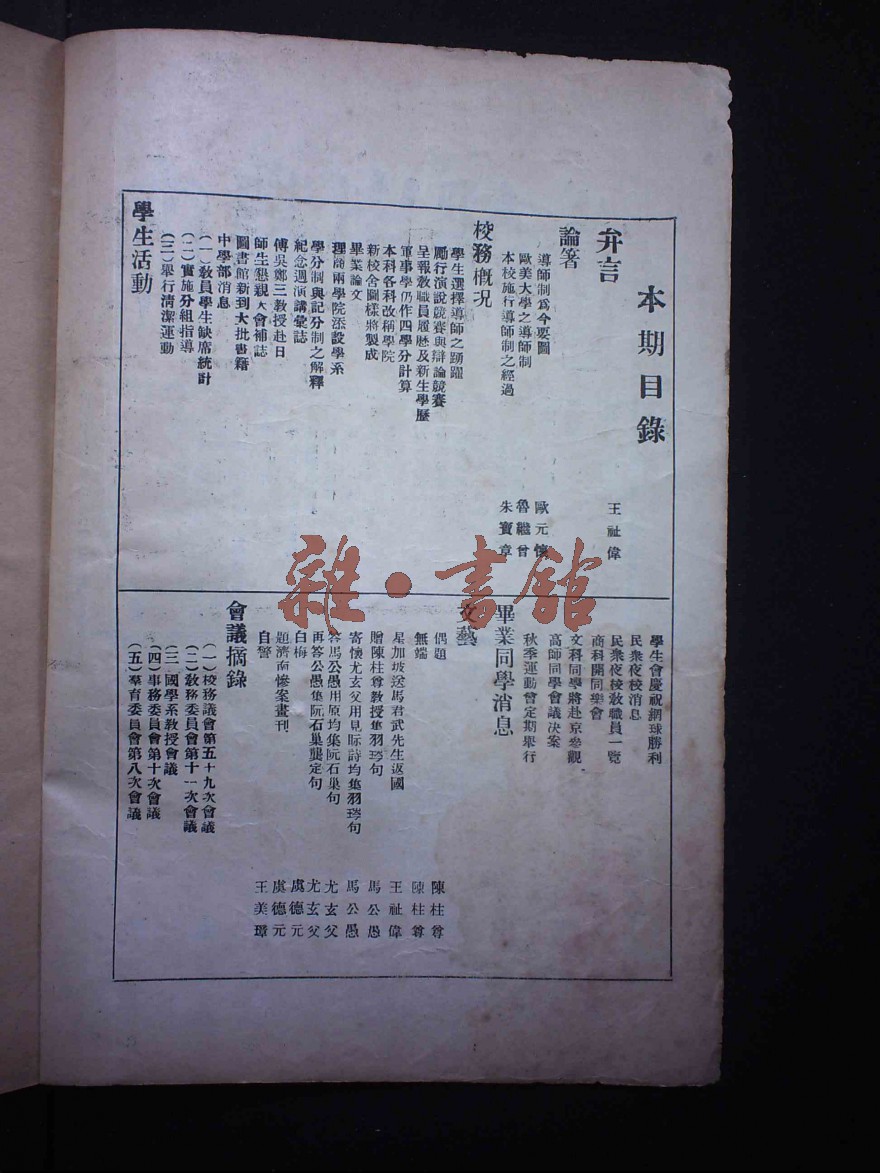 本期目錄
弁言
王祉偉
論箸
導師制爲今要圖
歐元懷
歐美大學之導師制
魯繼曾
本校施行導師制之經過
朱寶章
校務概况
學生選擇導師之踴躍
勵行演說競賽與辯論競賽
呈報敎職員履歷及新生學歷
軍事學仍作四學分計算
本科各科改稱學院
新校舍圖樣將製成
畢業論文
理商兩學院添設學系
學分制與記分制之解釋
紀念週演講彙誌
傅吳鄭三敎授赴日
師生懇親大會補誌
圖書館新到大批書籍
中學部消息
(一)敎員學生缺席統計
(二)實施分組指導
(三)舉行清潔運動
學生活動
學生會慶祝網球勝利
民衆夜校消息
民衆夜校敎職員一覽
商科開同樂會
文科同學將赴京參觀
高師同學會議决案
秋季運動會定期舉行
畢業同學消息
文藝
偶題
陳柱尊
無端
陳柱尊
星加坡送馬君武先生返國
王祉偉
贈陳柱尊敎授集羽琌句
馬公愚
寄懷尤玄父用見际詩均集羽琌句
馬公愚
答馬公愚用原均集阮石巢句
尤玄父
再答公愚集阮石巢龔定句
尤玄父
白梅
虞德元
題濟南慘案畫刊
虞德元
自警
王美璋
會議摘錄
(一)校務議會第五十九次會議
(二)敎務委員會第十一次會議
(三)國學系敎授會議
(四)事務委員會第十次會議
(五)羣育委員會第八次會議
雜·書館